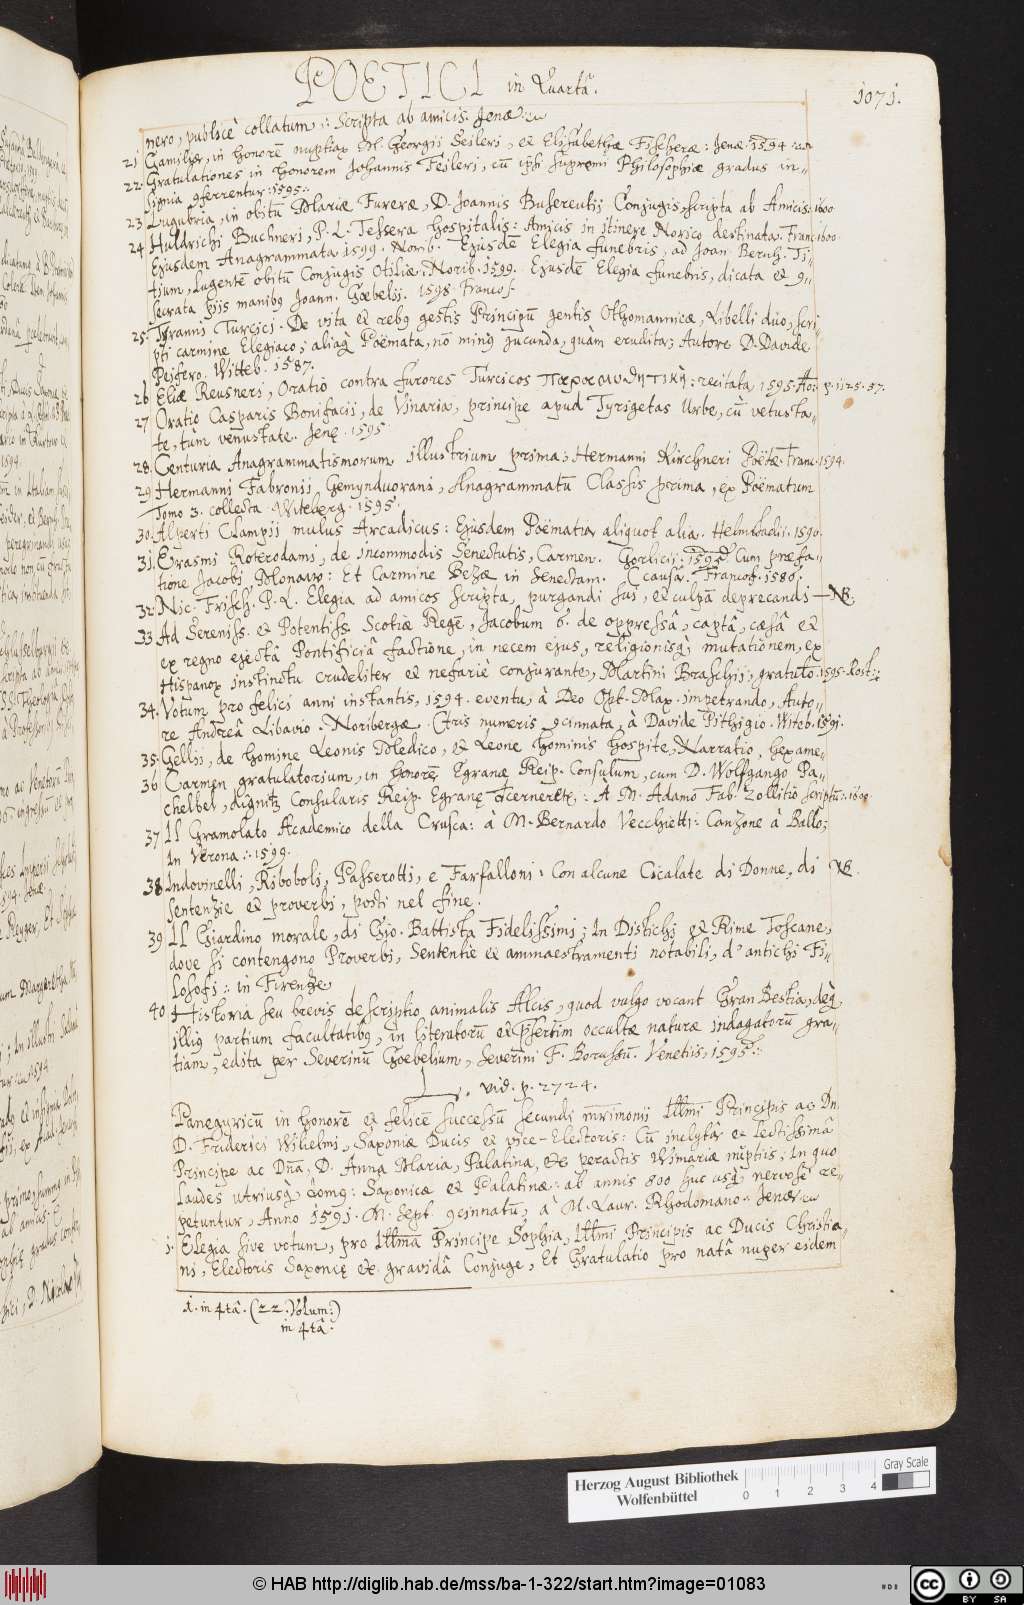 POETICI in Quartâ.
1071.
nero, publicè collatum: Scripta ab amicis. Jenæ.
21 Gamiliæ, in honorē nuptiaꝝ M. Georgii Seileri, et Elisabethæ Fischeræ: Jenæ. 1594
22. Gratulationes in honorem Johannis Feileri, cū ipsi supremi Philosophiæ gradus in-
signia conferrentur: 1595:
23. Lugubria, in obitū Mariæ Fureræ, D. Joannis Busereutij Conjugis, scripta ab Amicis: 1600
24. Huldrichi Buchneri, P. L. Tessera hospitalis: Amicis in itinere Norico destinata. Franc. 1600.
Ejusdem Anagrammata 1599. Norib. Ejusdē Elegia funebris, ad Joan. Beruh. Ti-
tium, lugentē obitū Conjugis Otiliæ. Norib. 1599. Ejusdē Elegia funebris, dicata et 9-
secrata piis manibꝰ Joann. Gœbelij. 1598. Francof.
25. Tyranni Turcici. De vita et rebꝰ gestis Principū gentis Othomannicæ, Libelli duo, scri-
pti carmine Elegiaco; aliaq̨ Poëmata, nō minꝰ jucunda, quàm erudita; Autore D. Davide
Peifero. Witteb. 1587.
26 Eliæ Reusneri, Oratio contra furores Turcicos παραμυθητικὴ: recitata 1595. p. 1125. 37.
27 Oratio Casparis Bonifacii, de Vinaria, principe apud Tyrigetas Urbe, cū vetusta-
te, tùm venustate. Jenę. 1595
28. Centuria Anagrammatismorum illustrium prima; Hermanni Kirchneri Poëtæ. Franc. 1594.
29 Hermanni Fabronij Gemynduorani, Anagrammatū Classis prima, ex Poëmatum
Tomo 3. collecta. Witeberg. 1595.
30. Alperti Clampii mulus Arcadicus: Ejusdem Poëmatia aliquot alia. Helmstadii. 1590.
31. Erasmi Roterodami, de incommodis Senectutis, Carmen. Gorlicij: 1595 Cum præfa-
tione Jacobi Monavo: Et Carmine Bezæ in Senectam. (causa. Francof. 1586.
32. Nic: Frisch. P. L. Elegia ad amicos scripta, purgandi sui, et culpā deprecandi — NB.
33 Ad Sereniss. et Potentiss. Scotiæ Regē, Jacobum 6. de oppressâ, captâ, cæsâ et
ex regno ejectâ Pontificiâ factione, in necem ejus, religionisq̨ mutationem, ex
Hispanoꝝ instinctu crudeliter et nefariè conjurante, Martini Braschij, gratulo. 1595. Rost.:
34. Votum pro felici anni instantis, 1594. eventu, à Deo Opt. Max. impetrando, Auto-
re Andreâ Libavio. Noribergæ. Ctris numeris 9cinnata, à Davide Pithigio. Witeb. 1591.
35. Gellij, de homine Leonis Medico, et Leone hominis hospite, Narratio, hexame-
36 Carmen gratulatorium, in honorē Egranæ Reip. Consulum, cum D. Wolfgango Pa-
chelbel, dignitꝫ Consularis Reip. Egranę decerneretꝝ: A M. Adamo Fab. Zollitio scriptū: 1600.
37. Il Gramolato Academico della Crusca: à M. Bernardo Vecchietti: Canzone à Ballo;
In Verona.: 1599.
38. Indovinelli, Riboboli, Passerotti, e Farfalloni: Con alcune Cicalate di Donne, di NB.
sentenzie et proverbi, posti nel fine.
39. Il Giardino morale, di Gio. Battista Fidelissimi; In Distichi et Rime Toscane,
dove si contengono Proverbi, Sententie et ammaestramenti notabili, d'antichi Fi-
losofi: in Firenze
40 Historia seu brevis descriptio animalis Alcis, quod vulgo vocant Gran Bestia, deq̨
illiꝰ partium facultatibꝰ, in literatorū et p̄sertim occultæ naturæ indagatorū gra-
tiam, edita per Severinū Goebelium, Severini F. Borussū. Venetiis, 1595.:
vid. p. 2724.
Panegyricū in honorē et felicē successū secundi mr̄imonij Illmi Principis ac Dn.
D. Friderici Wilhelmi, Saxoniæ Ducis et vice-Electoris: Cū inclytâ et lectissimâ
Principe ac Dnâ, D. Anna Maria, Palatina, etc peractis Wimariæ nuptiis; In quo
laudes utriusq̨ domꝰ: Saxonicæ et Palatinæ: ab annis 800 huc usq̨, nervosè re-
petuntur, Anno 1591. M. Sept. 9cinnatū, à M. Laur. Rhodomano. Jenæ.
1. Elegia sive votum, pro Illmâ Principe Sophia, Illmi Principis ac Ducis Christia-
ni, Electoris Saxonię etc gravidâ Conjuge, Et Gratulatio pro natâ nuper eidem
1. in 4tâ. (22. Volum:)
in 4tâ.
Herzog August Bibliothek
Wolfenbüttel
0 1 2 3 4
Gray Scale
© HAB http://diglib.hab.de/mss/ba-1-322/start.htm?image=01083
cc BY SA